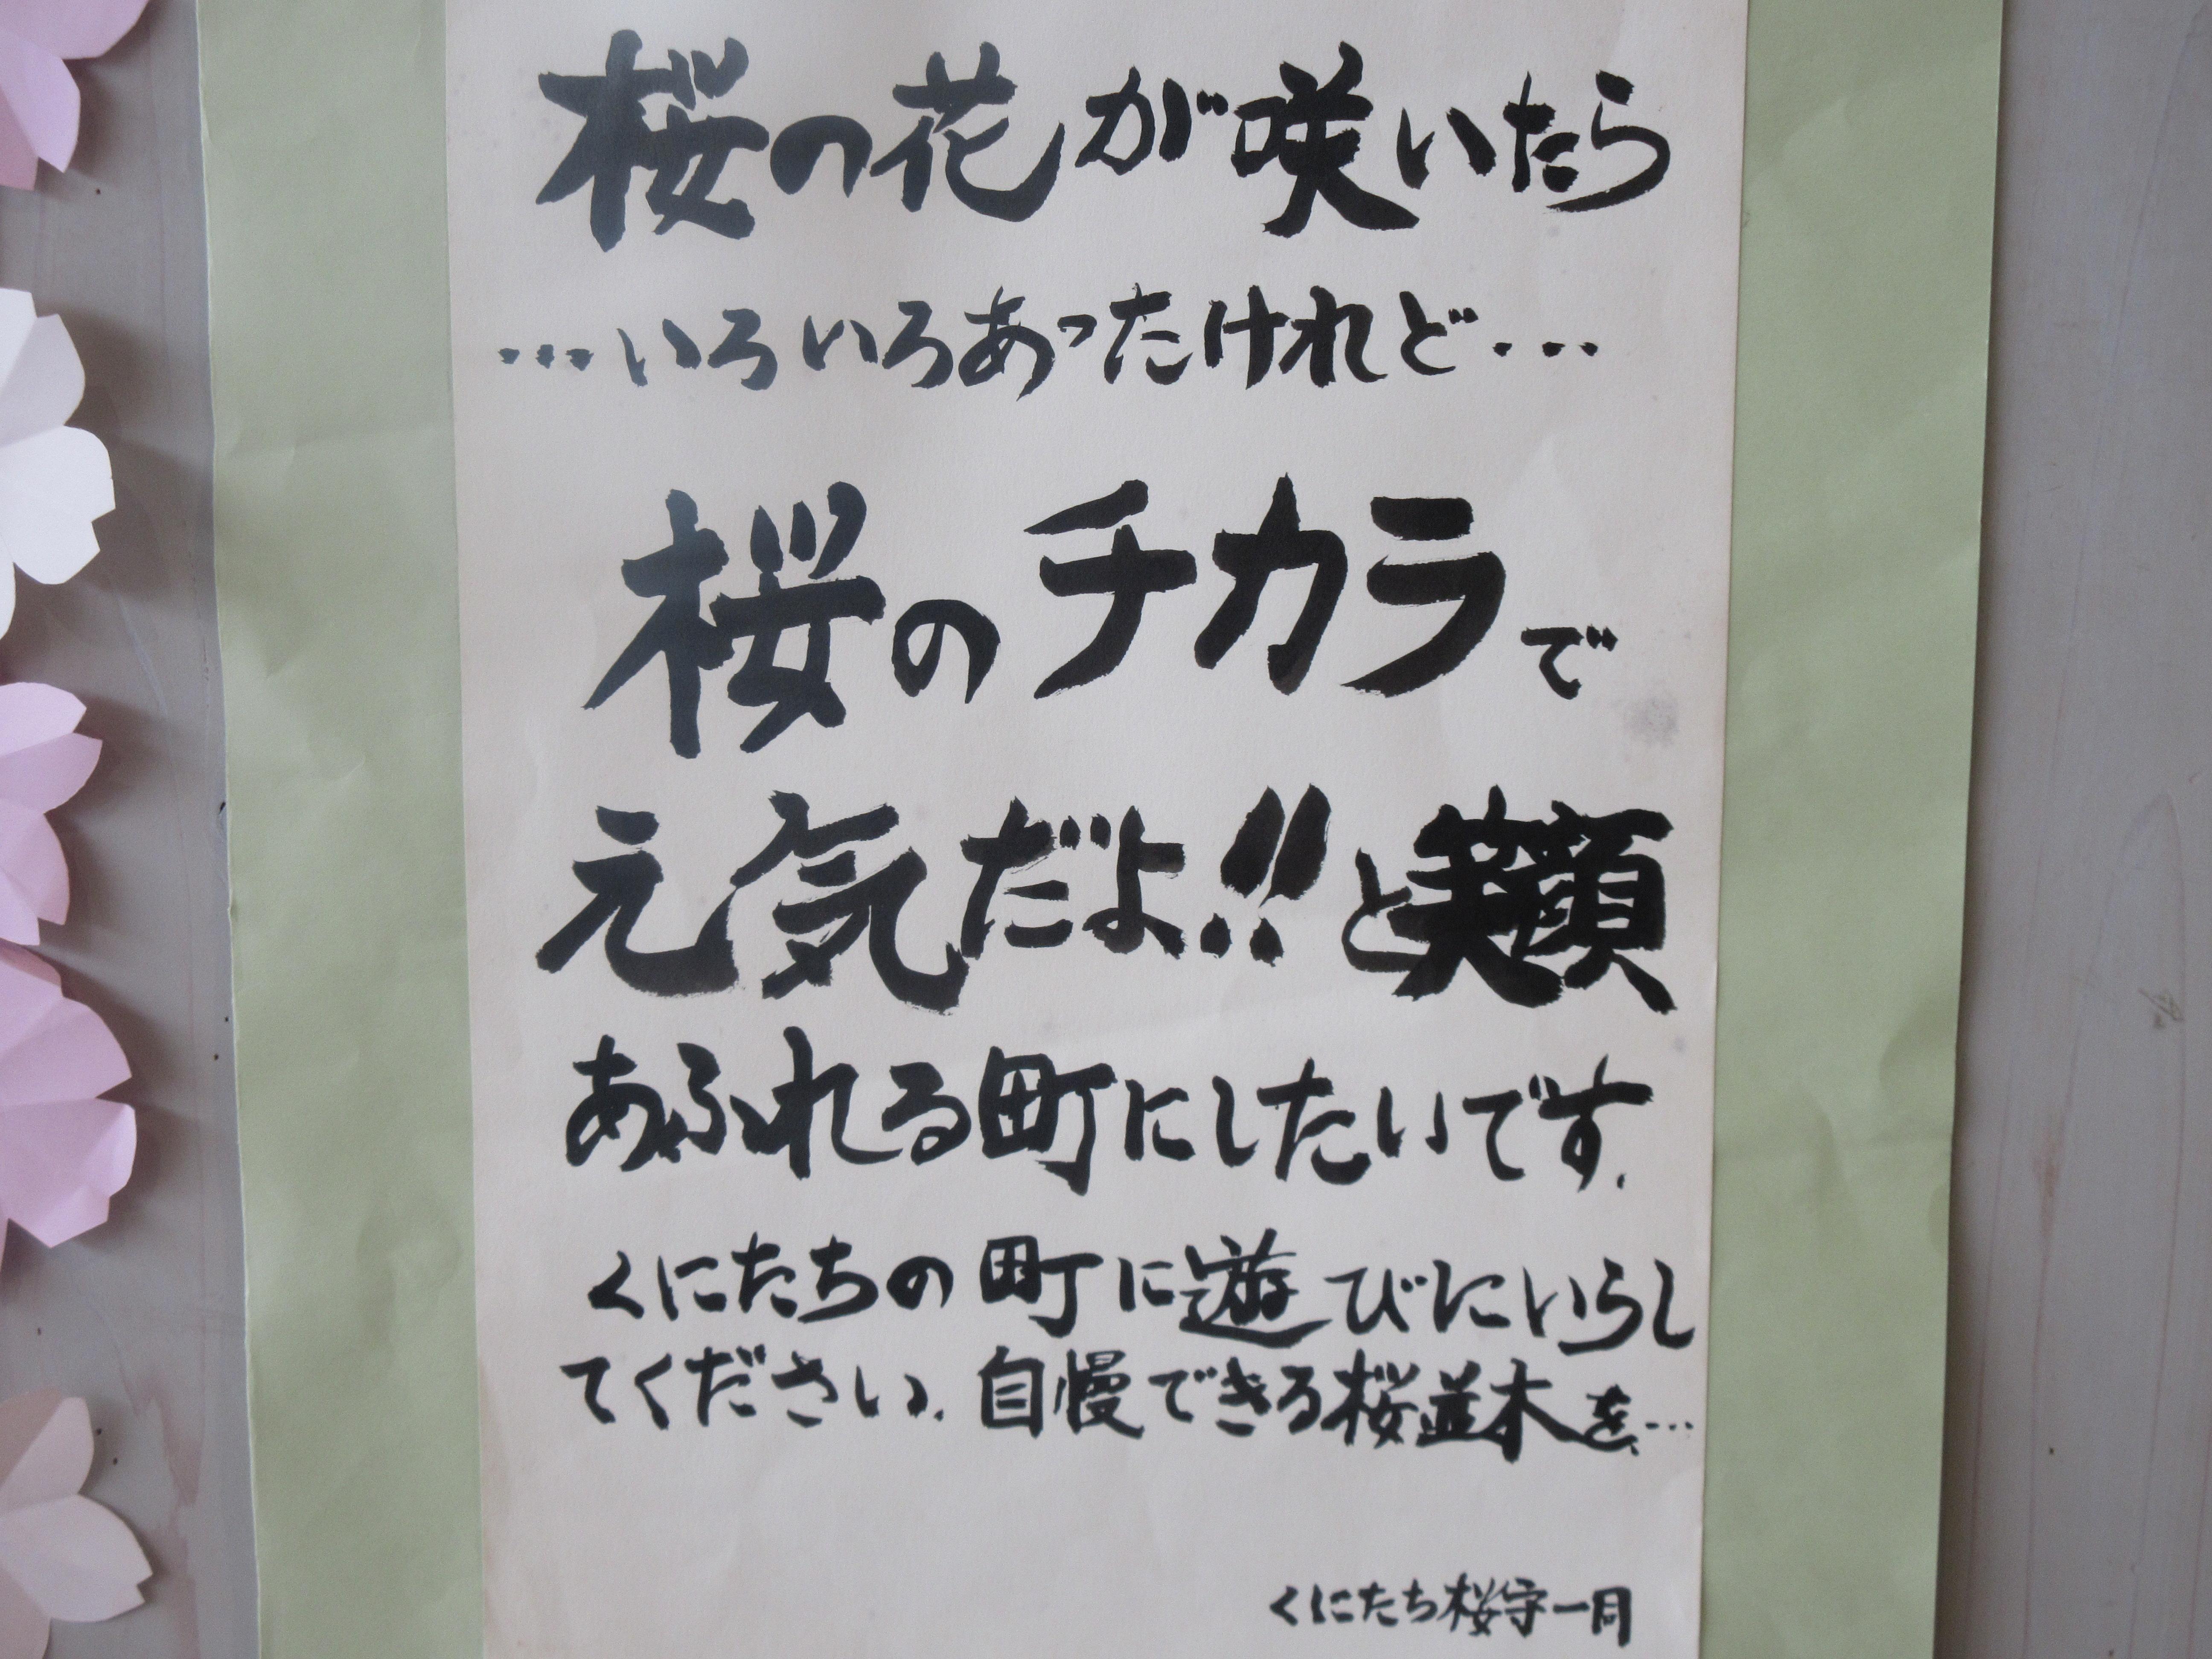 桜の花が咲いたら
…いろいろあったけれど…
桜のチカラで
元気だよ!!と笑顔
あふれる町にしたいです.
くにたちの町に遊びにいらし
てください.自慢できる桜並木を…
くにたち桜守一同